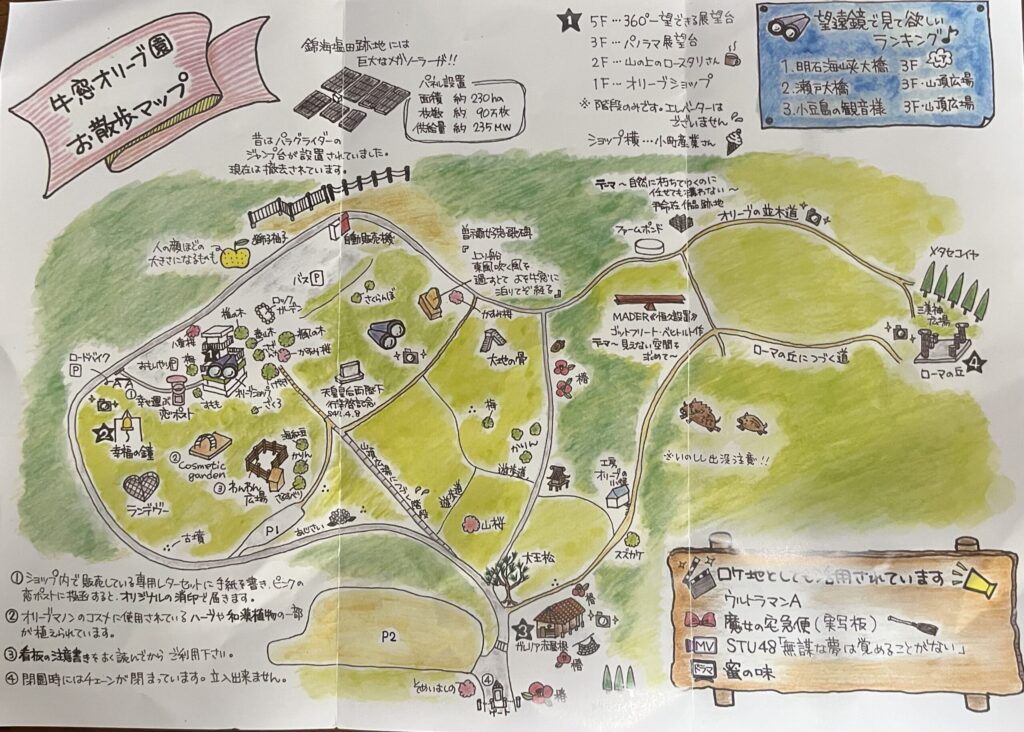 牛窓オリーブ園
お散歩マップ
錦海塩田跡地には
巨大なメガソーラーが!!
パネル設置
面積 約230ha
枚数 約90万枚
供給量 約235MW
昔はパラグライダーの
ジャンプ台が設置されていました。
現在は撤去されています。
1
5F…360°一望できる展望台
3F…パノラマ展望台
2F…山の上のロースタリさん
1F…オリーブショップ
※階段のみです。エレベーターは
ございません
ショップ横…小町産業さん
望遠鏡で見て欲しい
ランキング♪
1.明石海峡大橋 3F
2.瀬戸大橋 3F・山頂広場
3.小豆島の観音様 3F・山頂広場
人の顔ほどの
大きさになるものも
獅子柚子
自動販売機
バス P
さくらんぼ
『上り船
東風吹く風を
過すとて よを牛窓に
泊りてぞ経る』
かすみ桜
テーマ〜自然に朽ちてゆくのに
任せても構わない〜
跡地
ファームポンド
オリーブの並木道
メタセコイヤ
三美神
広場
ローマの丘
4
ローマの丘につづく道
MADER《恒久設置》
ゴットフリート・ベヒトルト作
テーマ〜見えない空間を
求めて〜
ロック
ガーデン
八重桜
かすみ桜
梅
おもしやり P
ロードバイク
P
オリーブショップ
すもも
ざくろ
① 幸せ運ぶ
恋ポスト
2
幸福の鐘
② Cosmetic
garden
③ わんわん
広場
かりん
さるすべり
ランデヴー
古墳
P1
あじさい
天皇皇后両陛下
行幸啓記念
山頂広場につづく階段
大地の骨
椿
梅
かりん
遊歩道
遊歩道
山桜
工房
オリーブの小屋
スズカケ
※いのしし出没注意!!
大王松
椿
3
ガレリア赤屋根
椿
P2
そめいよしの
④
ゲート
椿
①ショップ内で販売している専用レターセットに手紙を書き、ピンクの
恋ポストに投函すると、オリジナルの消印で届きます。
②オリーブマノンのコスメに使用されているハーブや和漢植物の一部
が植えられています。
③看板の注意書きをよく読んでからご利用下さい。
④閉園時にはチェーンが閉まっています。立入出来ません。
ロケ地としても活用されています
ウルトラマンA
魔女の宅急便(実写板)
MV STU48「無謀な夢は覚めることがない」
ドラマ 蜜の味